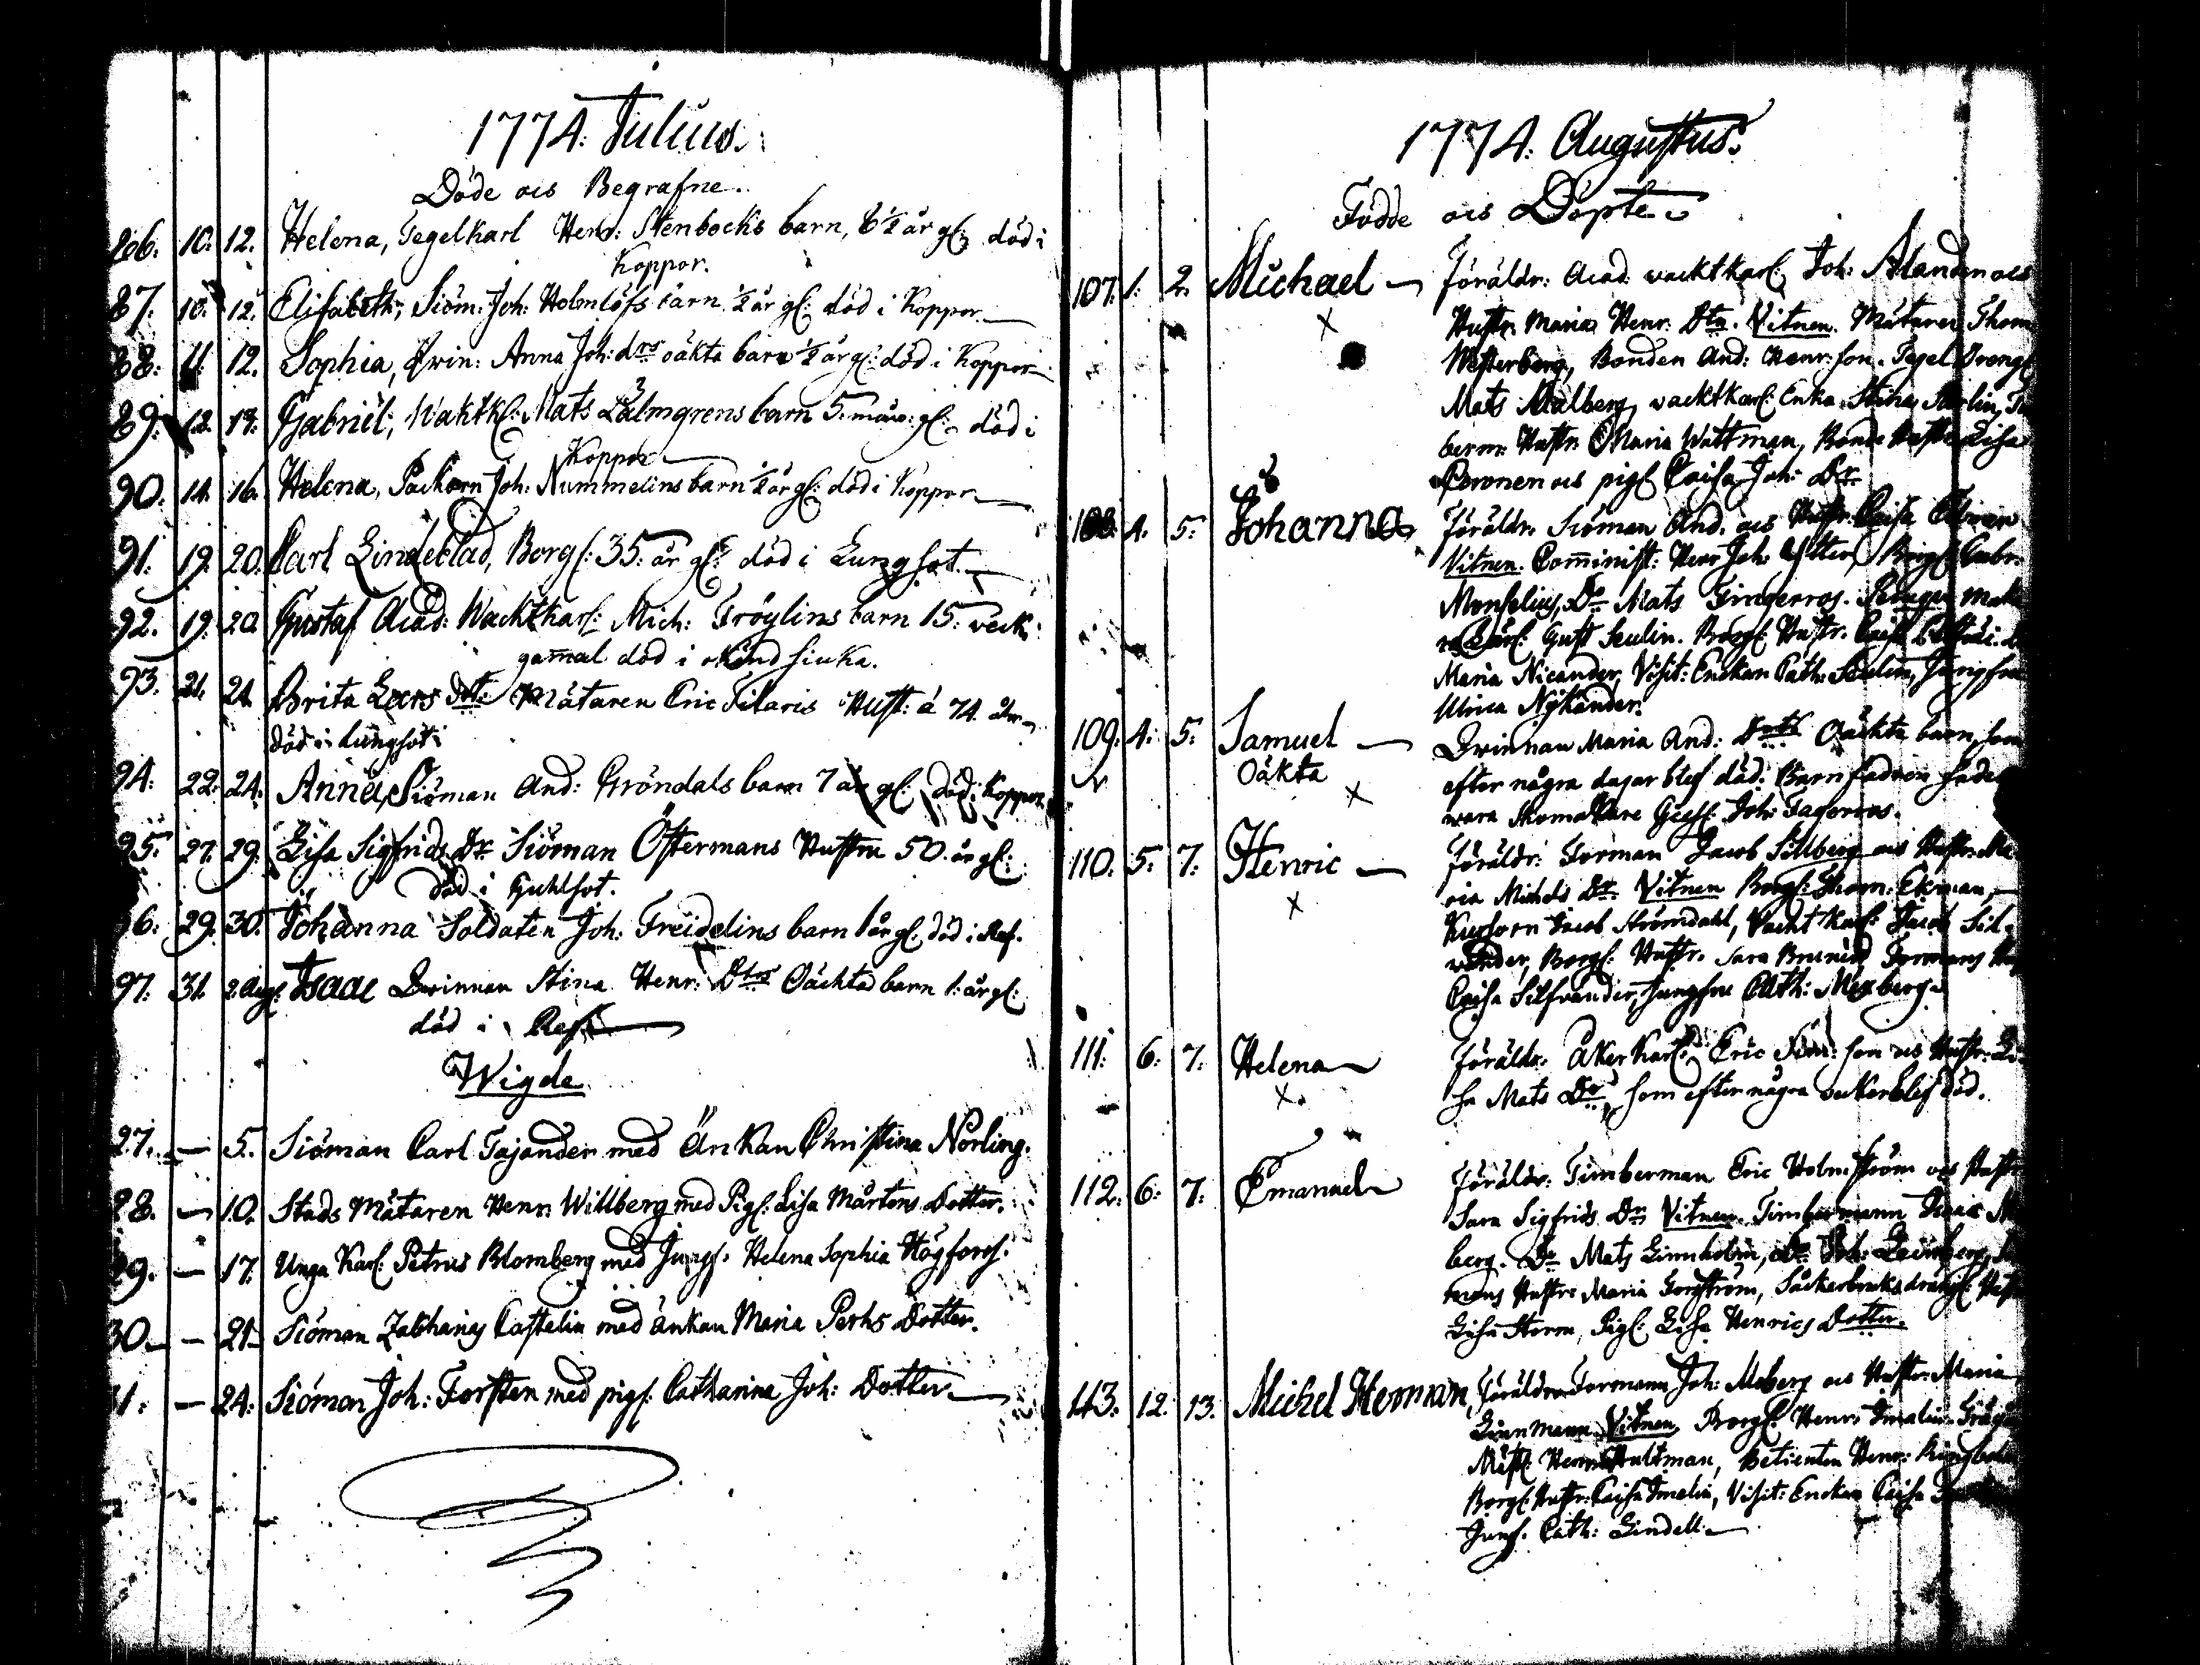 1774. Julius.
Döde och Begrafne.
86. 10. 12. Helena, Tegelkarl Henr: Stenbocks barn, 6½ år gl: död i
Koppor.
87. 10. 12. Elisabeth, Siöm: Joh: Holmlöfs barn ½ år gl: död i Koppor
88. 11. 12. Sophia, Qwin: Anna Joh: drs oäkta barn ½ år gl: död i Koppor
89. 12. Gabriel, Waktkl: Mats Lälmgrens barn 5 mån: gl: död i
Koppor
90. 14. 16. Helena, Joh: Nummelins barn ½ år gl: död i Koppor
91. 19. 20. Carl Lindeblad, Borgl: 35 år gl: död i Lungsot.
92. 19. 20. Gustaf Acad: Wacktkarl: Mich: Fröylins barn 15. veck:
gammal död i okänd siuka.
93. 21. 24. Brita Lars Dr: Mätaren Eric Silaris Hust: á 74 år
död i Lungsot:
94. 22. 24. Anna, Siöman And: Gröndals barn 7 år gl: död i Koppor
95. 27. 29. Lisa Sigfrids Dr Siöman Östermans Hustru 50. år gl:
död i Guhlsot.
96. 29. 30. Johanna Soldaten Joh: Freidelins barn 1 år gl: död i Ref.
97. 31. 2 Aug: Isaac Qwinnan Stina Henr: Dtrs Oächta barn 1: år gl:
död i Ref.
Wigde
27. — 5. Siöman Carl Tajander med Änkan Christina Norling.
28. — 10. Stads Mätaren Henr: Willberg med Pigl: Lisa Mårtens Dotter.
29. — 17. Unga Karl: Petrus Blomberg med Jungf: Helena Sophia Högfors.
30. — 21. Siöman Zachharias Castelin med änkan Maria Pehrs Dotter.
31. — 24. Siöman Joh: Forsten med pigl: Catharina Joh: Dotter
1774. Augustus.
Födde och Döpte
107. 1. 2. Michael — Föräldr: Acad. wacktkarl: Joh: Alandm och
Hustr: Maria Henr: Dtr. Vitnen. Mätaren Thom
Westerberg, Bonden And: Henr: son. Tegel Drengl
Mats Malberg, wacktkarl: Enka Stina
berm: Hustr: Maria Wattman, Bonde Hustr: Lisa
och pigl Caisa Joh: Dr.
108. 4. 5. Johanna Föräldr. Siöman And. och Hustr: Caisa
Vitnen. Comminist: Herr Joh: Borgl: Gabr:
Monselius, Do Mats Gingerros.
Gust Seulin. Borgl: Hustr. Caisa
Maria Nicander, Visit: Enckan Cath: Seulin, Jungfru
Ulrica Nykänder.
109. 4. 5. Samuel — Qwinnan Maria And: Drts Oäckta barn, som
Oäkta efter några dagar blef död. Barnfadren
wara Skomakare Gesl: Joh: Fagerroos.
110. 5. 7. Henric — Föräldr: Forman Jacob Sillberg och Hustr: Ma
ria Michels Dr. Vitnen Borgl: Thom: Ekman,
Jacob Strömdahl, Vacht Karl: Jacob Sil
vander, Borgl: Hustr. Sara Formans
Caisa Silfvander, Jungfru Cath: Mexberg
111. 6. 7. Helena Föräldr. Åker Karl: Eric Sim: son och Hustr: Li
sa Mats Dr, som efter några veckor blef död.
112. 6. 7. Emanuel Föräldr: Timberman Eric Holmström och Hustr
Sara Sigfrids Dr Vitnen. Timbermann Isaac
berg. Do Mats Linnholm, Do Joh:
mans Hustr: Maria Sockerbruks drängl: Hust
Lisa Storm, Pigl: Lisa Henrics Dotter.
113. 12. 13. Michel Herman, Föräldrar Formann Joh: Moberg och Hustr: Maria
Linnmann Vitnen Borgl: Henr: Smalin
Mäst: Herm: Hultman, Betienten Henr: Ringbom
Borgl: Hustr: Caisa Smelin, Visit: Enckan Caisa
Junf. Cath: Lindell